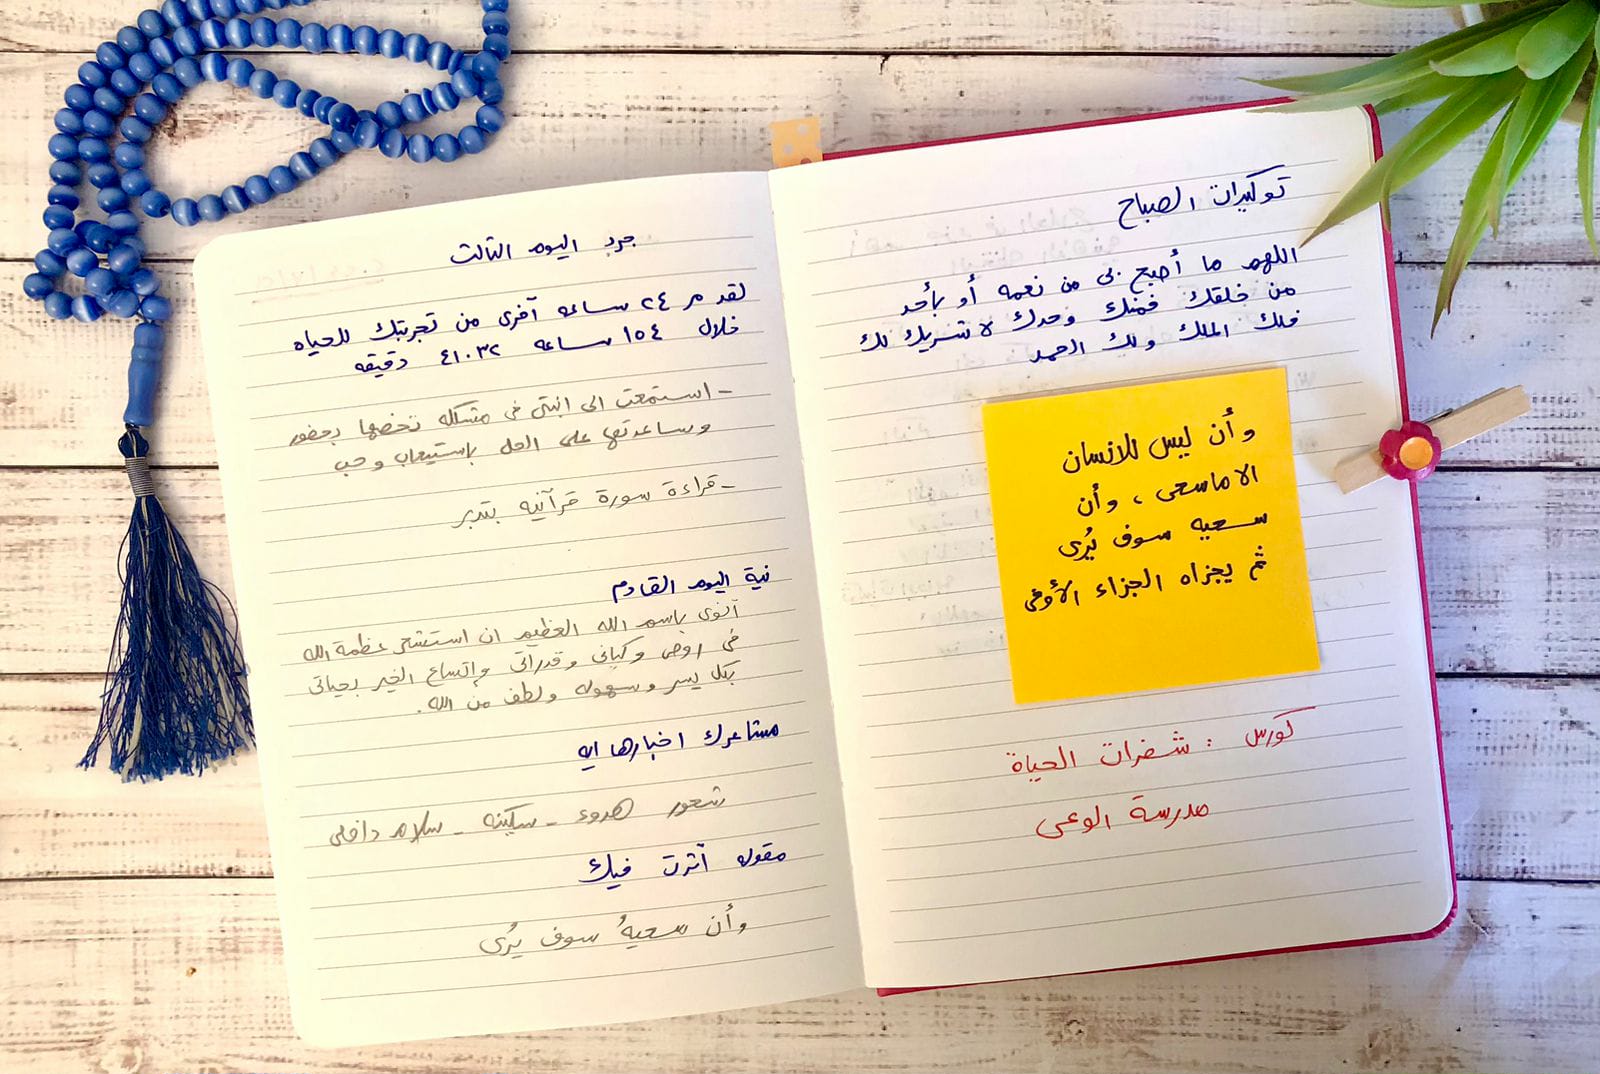 توكيدات الصباح
اللهم ما أصبح بى من نعمه أو بأحد
من خلقك فمنك وحدك لا شريك لك
فلك الملك ولك الحمد
وأن ليس للانسان
الا ماسعى ، وأن
سعيه سوف يُرى
ثم يجزاه الجزاء الأوفى
كورس : شفرات الحياة
مدرسة الوعى
جرد اليوم الثالث
لقد مر ٢٤ ساعه آخرى من تجربتك للحياه
خلال ١٥٤ ساعه ٤١.٣٢ دقيقه
- استمعت الى ابنتى فى مشكله تخصها بحضور
وساعدتها على الحل باستيعاب وحب
- قراءة سورة قرآنيه بتدبر
نية اليوم القادم
آنوى باسم الله العظيم ان استشعر عظمة الله
فى روحى وكيانى وقدراتى واتساع الخير بحياتى
بكل يسر وسهوله ولطف من الله.
مشاعرك اخبارها ايه
شعور هدوء - سكينه - سلام داخلى
مقوله آثرت فيك
وأن سعيهُ سوف يُرى